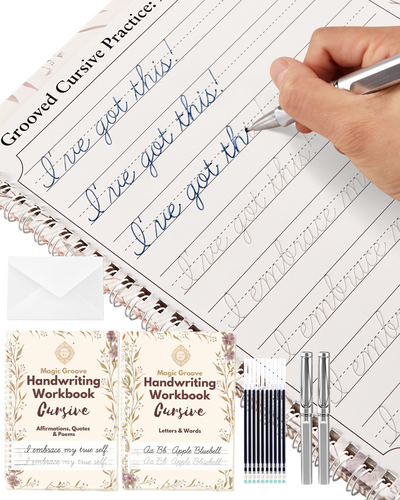 Grooved Cursive Practice:
I've got this!
I've got this!
I've got th
I've got this!
I embrace m
I embrace
I emb
Magic Groove
Handwriting
Workbook
Cursive
Affirmations, Quotes
& Poems
I embrace my true self.
I embrace my true self.
Magic Groove
Handwriting
Workbook
Cursive
Letters & Words
Aa Bb Apple Bluebell
Aa Bb Apple Bluebell